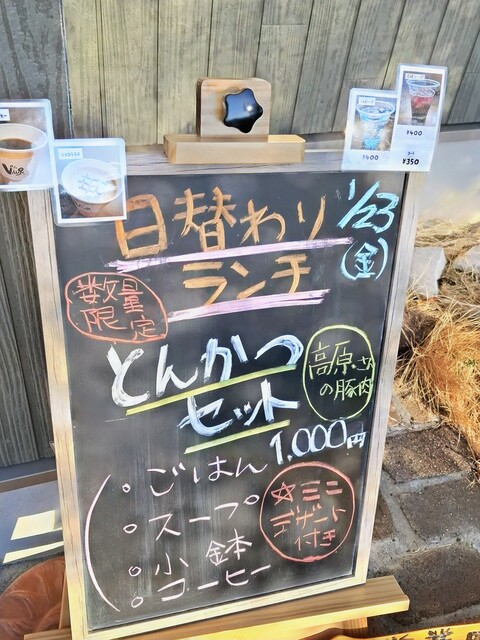 日替わり
ランチ
1/23
(金)
数量
限定
とんかつ
セット
高原さん
の豚肉
1,000円
ごはん
スープ
小鉢
コーヒー
☆ミニ
デザート
付き
¥400
¥400
¥350